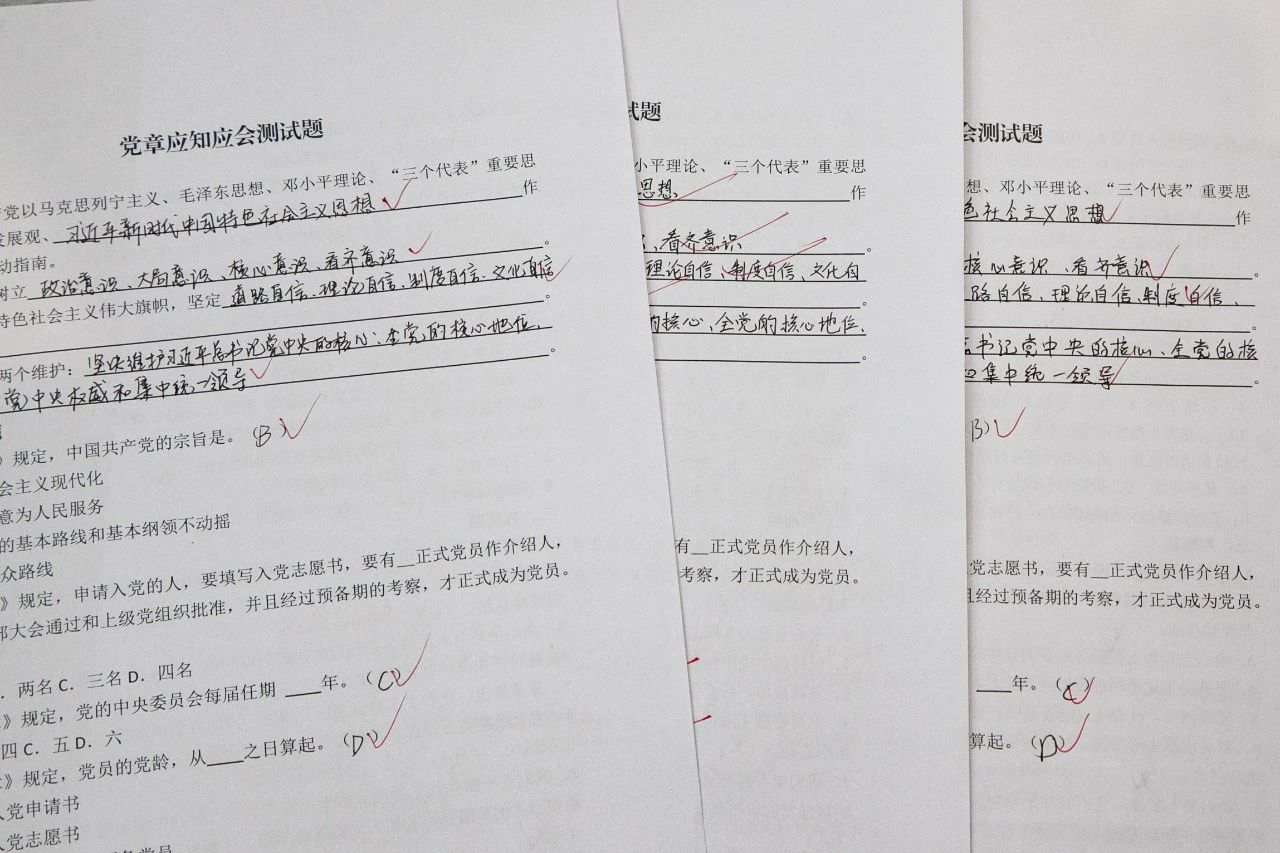 党章应知应会测试题
党以马克思列宁主义、毛泽东思想、邓小平理论、“三个代表”重要思
发展观、习近平新时代中国特色社会主义思想作
动指南。
树立 政治意识、大局意识、核心意识、看齐意识。
特色社会主义伟大旗帜，坚定道路自信、理论自信、制度自信、文化自信
。
两个维护：坚决维护习近平总书记党中央的核心、全党的核心地位、
党中央权威和集中统一领导。
》规定，中国共产党的宗旨是。（B）
会主义现代化
意为人民服务
的基本路线和基本纲领不动摇
众路线
》规定，申请入党的人，要填写入党志愿书，要有__正式党员作介绍人，
部大会通过和上级党组织批准，并且经过预备期的考察，才正式成为党员。
．两名 C．三名 D．四名
》规定，党的中央委员会每届任期 ____年。（C）
四 C．五 D．六
》规定，党员的党龄，从____之日算起。（D）
入党申请书
入党志愿书
试题
小平理论、“三个代表”重要思
思想作
、看齐意识。
理论自信、制度自信、文化自
。
的核心、全党的核心地位、
。
有__正式党员作介绍人，
考察，才正式成为党员。
会测试题
想、邓小平理论、“三个代表”重要思
色社会主义思想作
核心意识、看齐意识。
路自信、理论自信、制度自信、
。
书记党中央的核心、全党的核
集中统一领导。
B）
党志愿书，要有__正式党员作介绍人，
且经过预备期的考察，才正式成为党员。
____年。（C）
算起。（D）